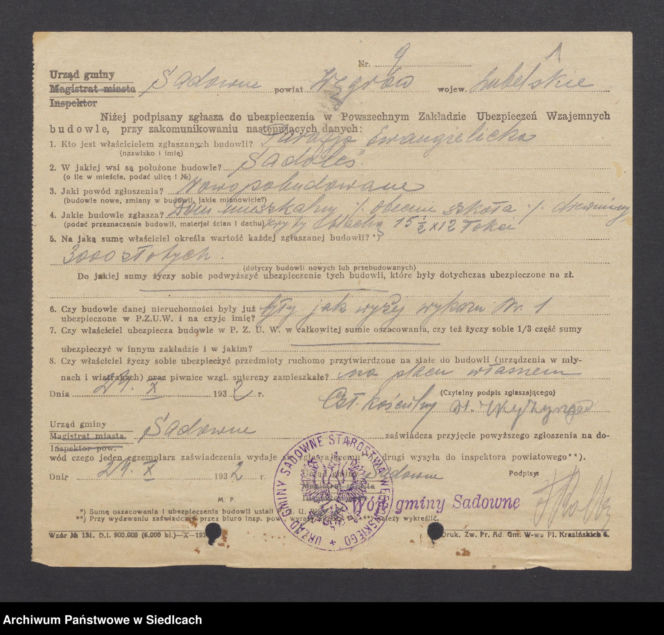 Nr. 9
Urząd gminy
Magistrat miasta Sadowne powiat Węgrów wojew. Lubelskie
Inspektor
Niżej podpisany zgłasza do ubezpieczenia w Powszechnym Zakładzie Ubezpieczeń Wzajemnych
budowle, przy zakomunikowaniu następujących danych:
1. Kto jest właścicielem zgłaszanych budowli? Parafja Ewangielicka
(nazwisko i imię)
2. W jakiej wsi są położone budowle? Sadoleś
(o ile w mieście, podać ulicę i №)
3. Jaki powód zgłoszenia? Nowopobudowane
(budowle nowe, zmiany w budowli, jakie mianowicie?)
4. Jakie budowle zgłasza? Dom mieszkalny /. obecnie szkoła ./. drewniany
(podać przeznaczenie budowli, materjał ścian i dachu) kryty blachą 15 1/2 x 12
5. Na jaką sumę właściciel określa wartość każdej zgłaszanej budowli? *)
3000 złotych.
(dotyczy budowli nowych lub przebudowanych)
Do jakiej sumy życzy sobie podwyższyć ubezpieczenie tych budowli, które były dotychczas ubezpieczone na zł.
6. Czy budowle danej nieruchomości były już były jak wyżej wykazu Nr. 1
ubezpieczone w P.Z.U.W. i na czyje imię?
7. Czy właściciel ubezpiecza budowle w P. Z. U. W. w całkowitej sumie oszacowania, czy też życzy sobie 1/3 część sumy
ubezpieczyć w innym zakładzie i w jakim?
8. Czy właściciel życzy sobie ubezpieczyć przedmioty ruchomo przytwierdzone na stałe do budowli (urządzenia w mły-
nach i wiatrakach) oraz piwnice wzgl. sutereny zamieszkałe? na placu własnem
(Czytelny podpis zgłaszającego)
Dnia 29. X 1932 r. Czł. Kościelny
Urząd gminy
Magistrat miasta Sadowne zaświadcza przyjęcie powyższego zgłoszenia na do-
Inspektor pow.
wód czego jeden egzemplarz zaświadczenia wydaje zgłaszającemu drugi wysyła do inspektora powiatowego**).
Dnia 29. X 1932 r. Sadowne Podpis
M. P. Wójt gminy Sadowne
URZĄD GMINY SADOWNE STAROSTWA WĘGROWSKIEGO
*) Sumę oszacowania i ubezpieczenia budowli ustali P. Z. U.
**) Przy wydawaniu zaświadczeń przez biuro insp. pow. należy wykreślić.
Wzór № 131. D.I. 900.000 (6.000 bl.)—X—193
Druk. Zw. Pr. Ad. Gm. W-wa Pl. Krasińskich 6.
Archiwum Państwowe w Siedlcach